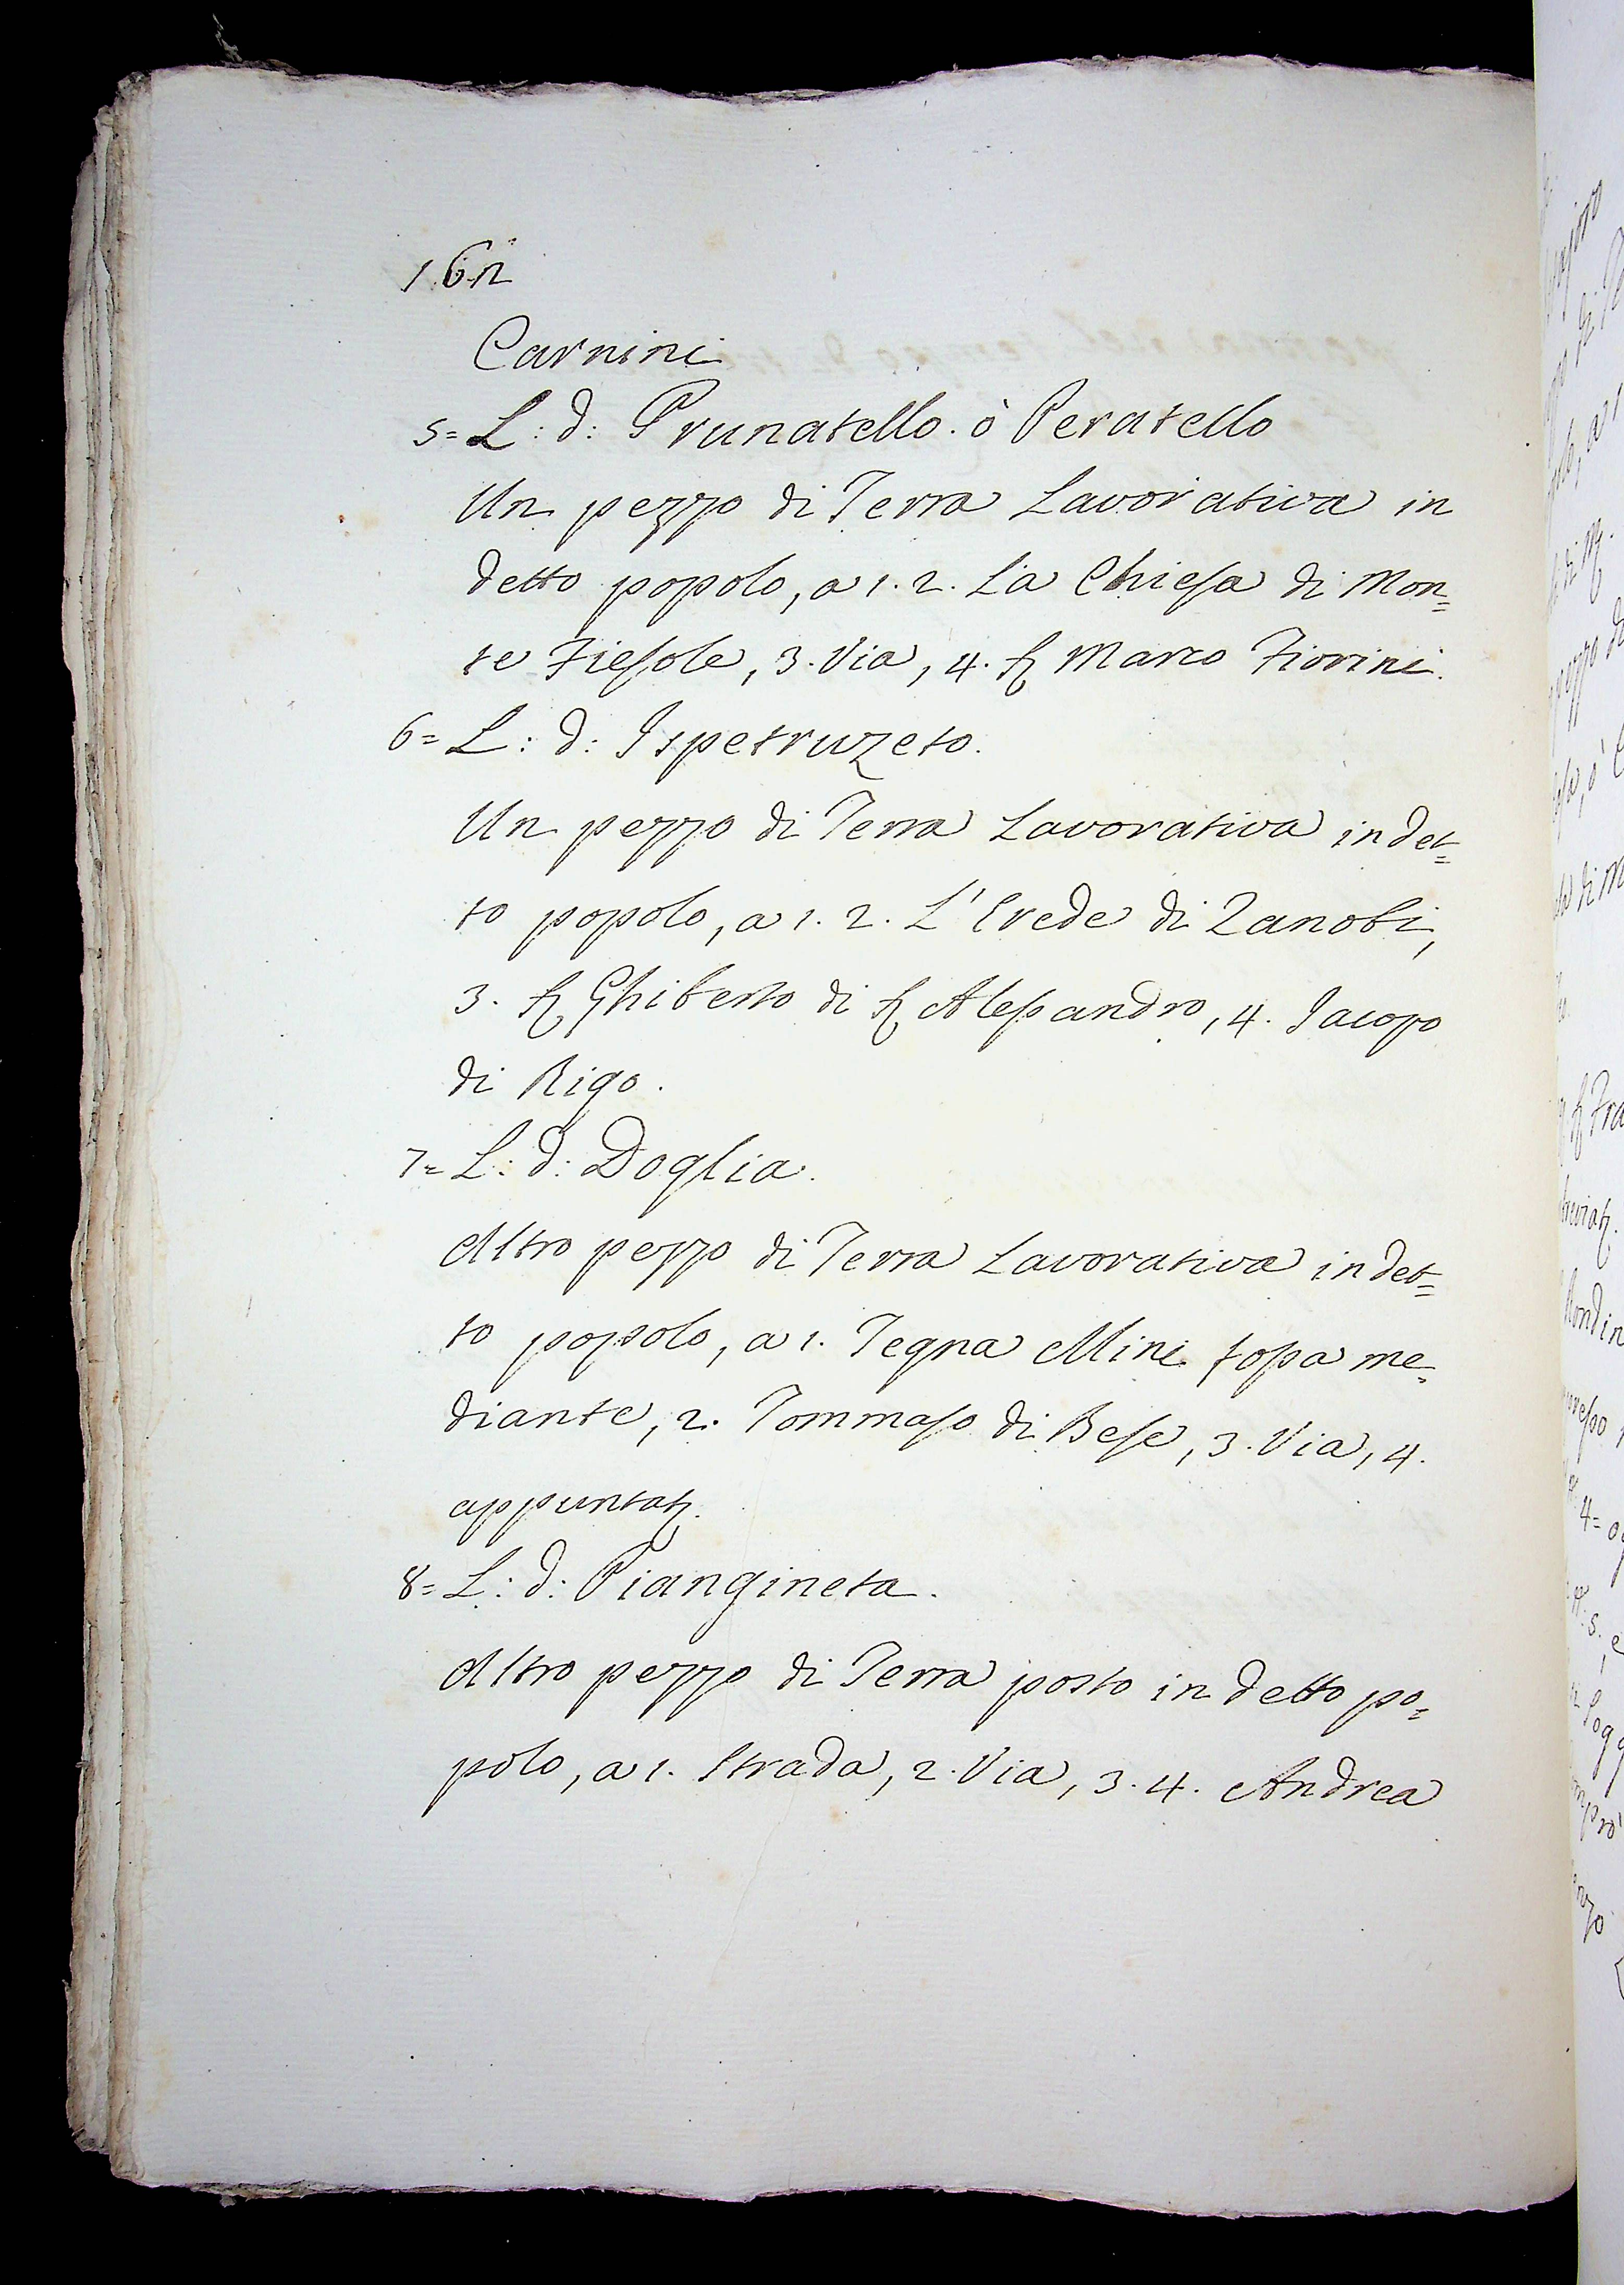 162
Carnini
5= L: d: Prunatello. ò Peratello
Un pezzo di Terra Lavorativa in
detto popolo, a 1. 2. La Chiesa di Mon=
te Fiesole, 3. Via, 4. Marco Fiorini.
6= L: d: Ispetruzeto.
Un pezzo di Terra Lavorativa in det=
to popolo, a 1. 2. L'Erede di Zanobi,
3. Ghiberto di Alessandro, 4. Jacopo
di Rigo.
7= L: d: Doglia.
Altro pezzo di Terra Lavorativa in det=
to popolo, a 1. Tegna Mini fossa me=
diante, 2. Tommaso di Bese, 3. Via, 4.
8= L: d: Piangineta.
Altro pezzo di Terra posto in detto po=
polo, a 1. Strada, 2. Via, 3. 4. Andrea